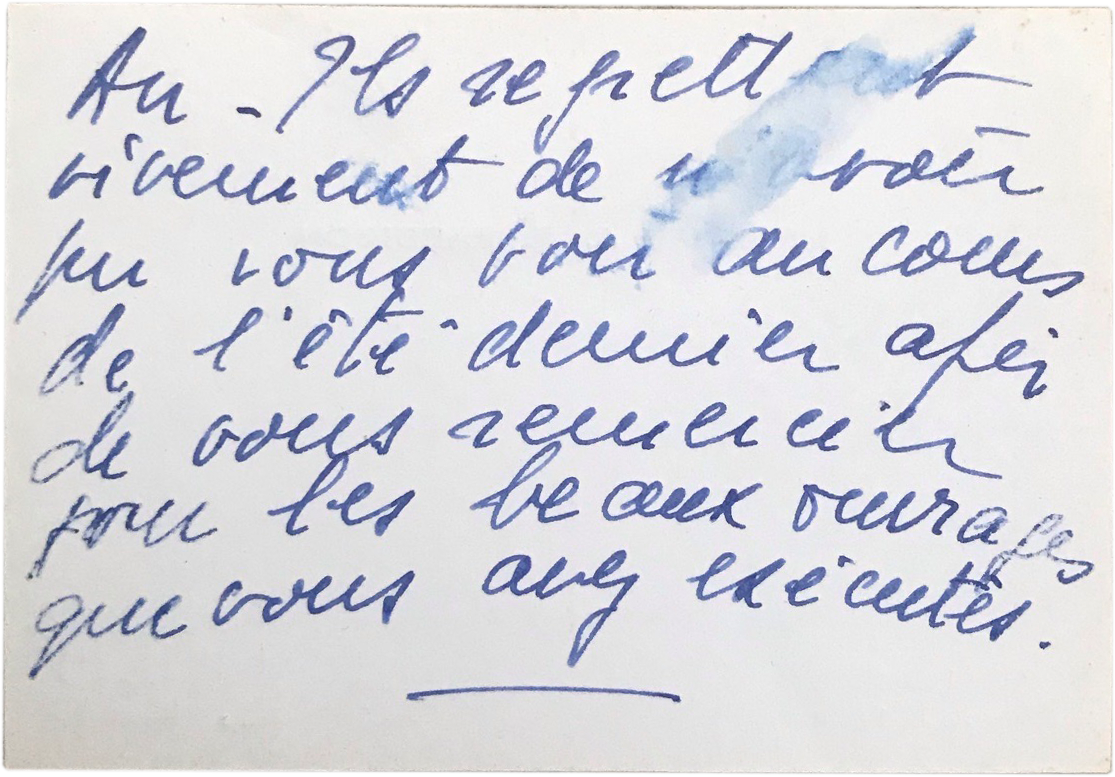 An - Ils regrettent
vivement de n'avoir
pu vous voir au cours
de l'été dernier afin
de vous remercier
pour les beaux ouvrages
que vous avez exécutés.